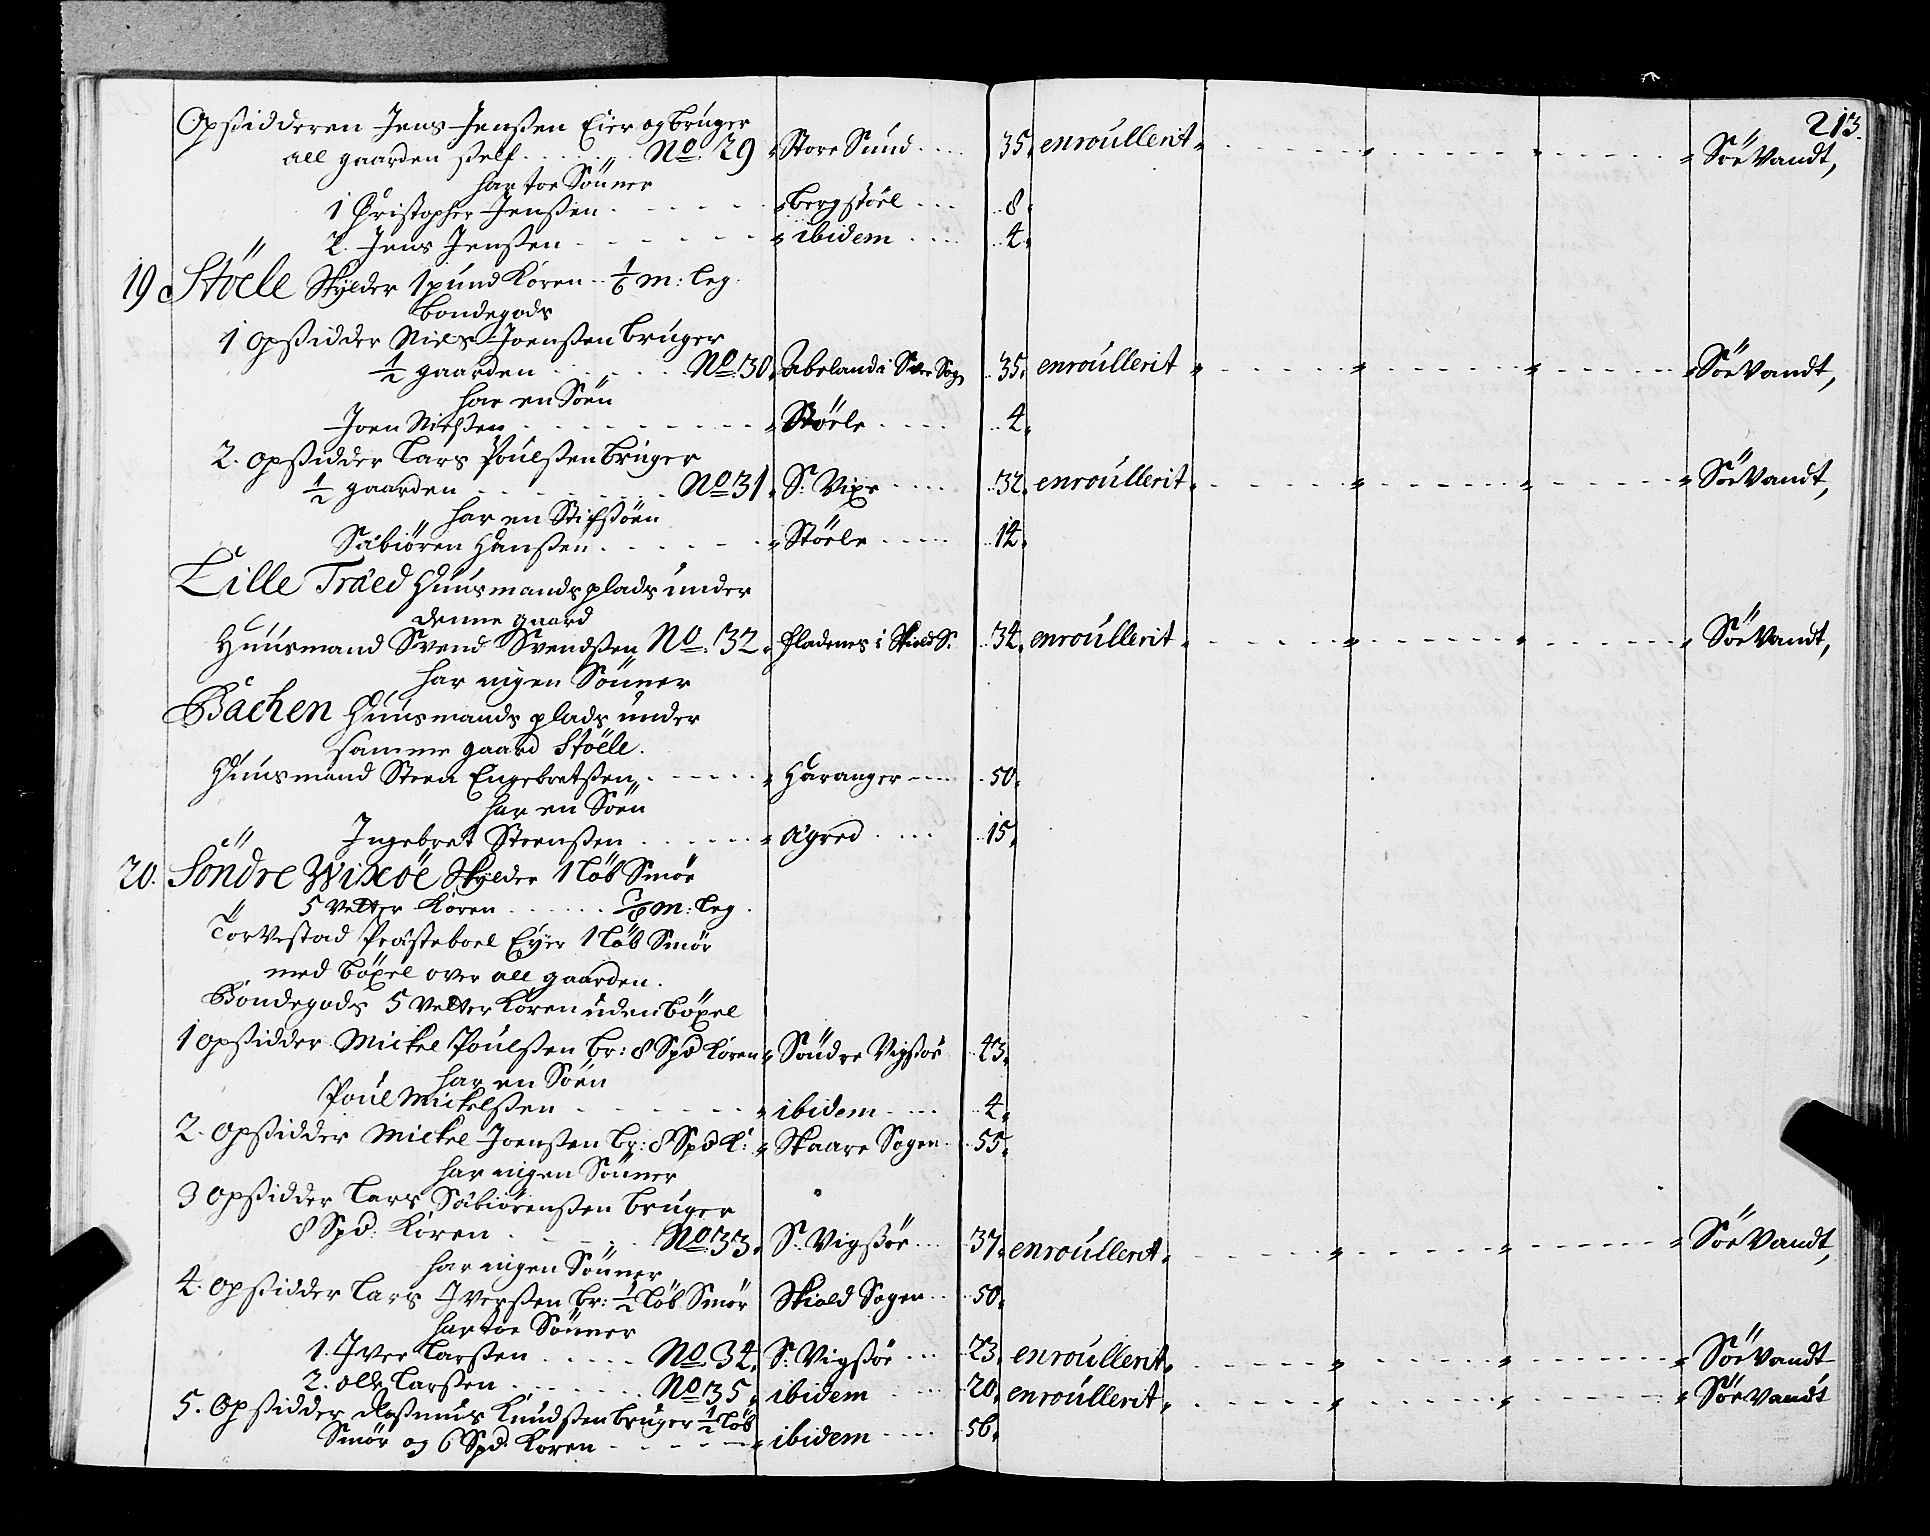 213.
Opsidderen Jens Jenssen Eier og brúger
all gaarden self No. 29 Store Sund 35. enroúllerit Söe Vandt,
har toe Sönner
1 Christopher Jenssen bergstöel 8.
2. Jens Jenssen ibidem 4.
19 Stöele Skylder 1 pund Koren 1/6 m: leg
bondegods
1 Opsidder Niels Joenssen brúger
1/2 gaarden No. 30. i Sogn 35. enroúllerit Söe Vandt,
har en Söen
Joen Nielssen Stöele 4.
2. Opsidder Lars Poúlssen brúger
1/2 gaarden No. 31. S: Vixe 32. enroúllerit Söe Vandt,
har en Stifssöen
Säbiören Hanssen Stöele 14.
Lille Träed Húúsmands plads únder
denne gaard
Húúsmand Svend Svendssen No. 32. fladenes i Skiold S. 34. enroúllerit Söe Vandt,
har ingen Sönner
Bachen Húúsmands plads únder
samme gaard Stöele.
Húúsmand Steen Engebretssen Haranger 50.
har en Söen
Ingebret Steenssen 15.
20. Söndre Wixöe Skylder 1 löb Smör
5 Vetter Koren m: leg.
Torvestad Präesteboel Eyer 1 Löb Smör
med böxel over all gaarden.
Bondegods 5 Vetter Koren úden böxel
1 Opsidder Mickel Poúlssen br: 8 Spd Koren Söndre Vigssöe 43.
har en Söen
Poúl Mickelssen ibidem 4.
2. Opsidder Mickel Joenssen br: 8 Spd K: Skaare Sogen 55.
har ingen Sönner
3 Opsidder Lars Säbiörenssen brúger
8 Spd: Koren No. 33. S: Vigssöe 37. enroúllerit Söe Vandt,
har ingen Sönner
4. Opsidder Lars Iverssen br: 1/2 Löb Smör Skiold Sogen 50.
har toe Sönner
1. Iver Larssen No. 34. S: Vigssöe 23. enroúllerit Söe Vandt
2. Olle Larssen No. 35. ibidem 20. enroúllerit Söe Vandt
5. Opsidder Rassmús Knúdssen brúger 1/2 Löb
Smör og 6 Spd: Koren ibidem 56.